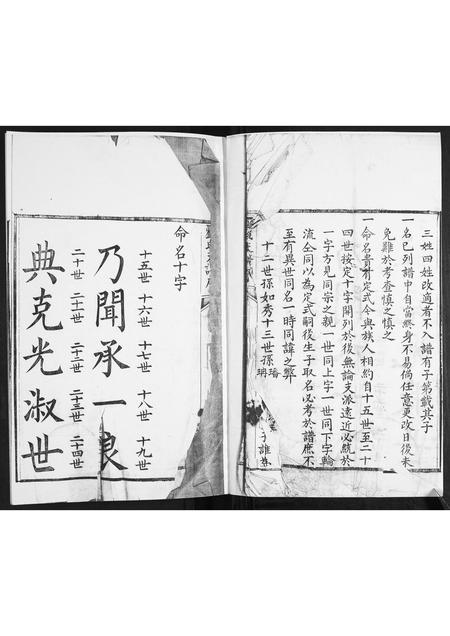 三姓四姓改適者不入譜有子第載其子
一名已列譜中自當終身不易倘任意更改日後未
免難於考查慎之慎之
一命名貴有定式今與族人相約自十五世至二十
四世按定十字開列於後無論支派遠近必統於
一字方見同宗之親一世同上字一世同下字輪
流仝同以為定式嗣後生子取名必考於譜庶不
至有異世同名一時同諱之弊
十二世孫如秀十三世孫璠
命名十字
十五世 十六世 十七世 十八世 十九世
乃聞承一良
二十世 二十一世 二十二世 二十三世 二十四世
典克光淑世